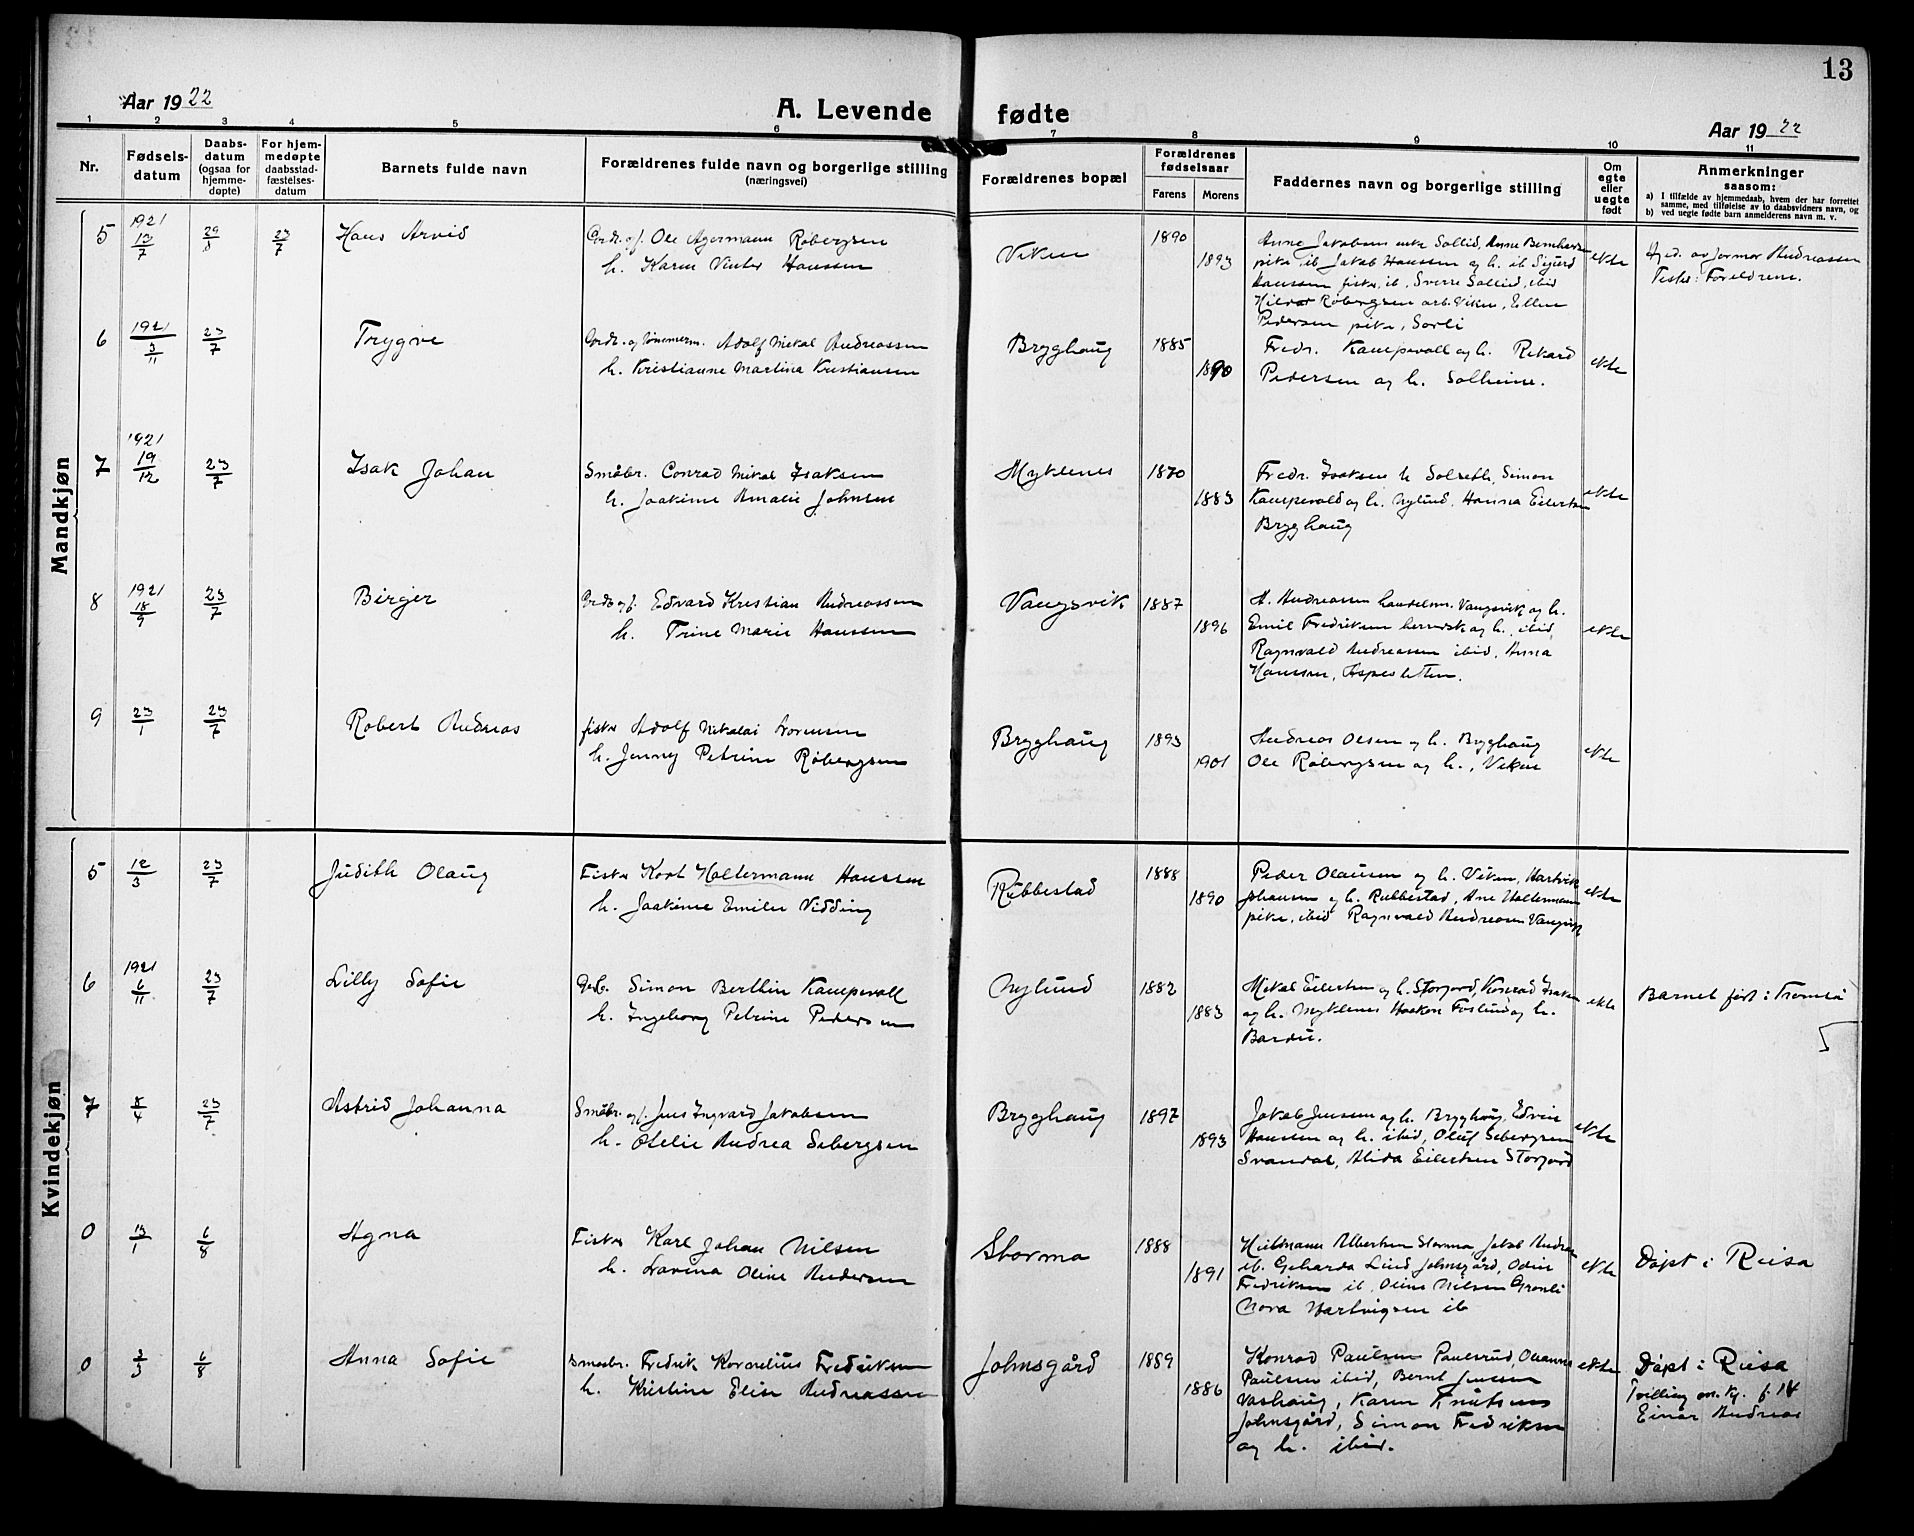 13
Aar 1922
A. Levende fødte
Aar 1922
1 2 3 4 5 6 7 8 9 10 11
Nr.
Fødsels-
datum
Daabs-
datum
(ogsaa for
hjemme-
døpte)
For hjem-
medøpte
daabsstad-
fæstelses-
datum
Barnets fulde navn
Forældrenes fulde navn og borgerlige stilling
(næringsvei)
Forældrenes bopæl
Forældrenes
fødselsaar
Farens Morens
Faddernes navn og borgerlige stilling
Om
egte
eller
uegte
født
Anmerkninger
saasom:
a) I tilfælde av hjemmedaab, hvem der har forrettet
samme, med tilføielse av to daabsvidners navn, og
b) ved uegte fødte barn anmelderens navn m. v.
Mandkjøn
5 1921 13/7 23/7 Hans Arvid
Ole Agermann Røbergsen
h. Karen Vinter Hanssen
Viken 1890 1893
Anne Jakobsen enke Sollid, Anne Bernhardsen
pike ib Jakob Hanssen og h. ib Sigurd
Hanssen fisker, ib, Sverre Sollid, ibid
Hilvar Røbergsen arb. Viken, Ellen
Pedersen pike, Sørli
ekte
Hjd. av jormor Andreassen
Foreldrene.
6 1921 3/11 23/7 Trygve
Adolf Mikal Andreassen
h. Kristianne Martina Kristiansen
Brygghaug 1885 1890
Fredr. Kampevoll og h. Rikard
Pedersen og h. Solheim.
ekte
7 1921 19/12 23/7 Isak Johan
Småbr. Conrad Mikal Isaksen
h. Joakime Amalie Johnsen
Myklenes 1870 1883
Fredr. Isaksen h Solseth, Simon
Kampevold og h. Nylund, Hanna Eilertsen
Brygghaug
ekte
8 1921 18/9 23/7 Birger
Edvard Kristian Andreassen
h. Trine Marie Hanssen
Vangsvik 1887 1896
A. Andreassen handelsm. Vangsvik og h.
Emil Fredriksen og h. ibid,
Ragnvald Andreassen ibid, Anna
Hanssen, Aspesletten.
ekte
9 23/1 23/7 Robert Andreas
fisker Adolf Nikolai Sørensen
h. Jenny Petrine Røbergsen
Brygghaug 1893 1901
Andreas Olsen og h. Brygghaug
Ole Røbergsen og h., Viken
ekte
Kvindekjøn
5 12/3 23/7 Judith Olaug
Fisker Kort Holtermann Hanssen
h. Joakime Emilie Vidding
Rubbestad 1888 1890
Peder Olaussen og h. Viken, Hartvik
Johansen og h. Rubbestad, Ane Holtermann
pike, ibid Ragnvald Andreassen Vangsvik
ekte
6 1921 6/11 23/7 Lilly Sofie
Simon Berthin Kampevoll
h. Ingeborg Petrine Pedersen
Nylund 1882 1883
Mikal Eilertsen og h. Storjord, Konrad Isaksen
og h. Myklenes Haakon Foslund og h.
Bardu.
ekte
Barnet født i Tromsø
7 8/4 23/7 Astrid Johanna
Småbr. og f. Jens Ingvard Jakobsen
h. Otelie Andrea Sebergsen
Brygghaug 1897 1893
Jakob Jensen og h. Brygghaug, Edvin
Hanssen og h. ibid, Oluf Sebergsen
Svandal, Alida Eilertsen Storjord
ekte
0 13/1 6/8 Agna
Fisker Karl Johan Nilsen
h. Lavina Oline Andersen
Storma 1888 1891
Hiltmann Albertsen Storma, Jakob Andrea
ib. Geharda Lind Johnsgård, Odin
Fredriksen ib, Oline Nilsen Grønli
Nora Hartvigsen ib
ekte
Døpt i Reisa
0 3/3 6/8 Anna Sofie
Småbr. Fredrik Kornelius Fredriksen
h. Kristine Elise Andreassen
Johnsgård 1889 1886
Konrad Paulsen Paulsrud, Oluanna
Paulsen ibid, Bernt Jenssen
Vashaug, Karen Knutsen
Johnsgård, Simon Fredriksen
og h. ibid.
ekte
Døpt i Reisa
Tvilling
Einar Andreas